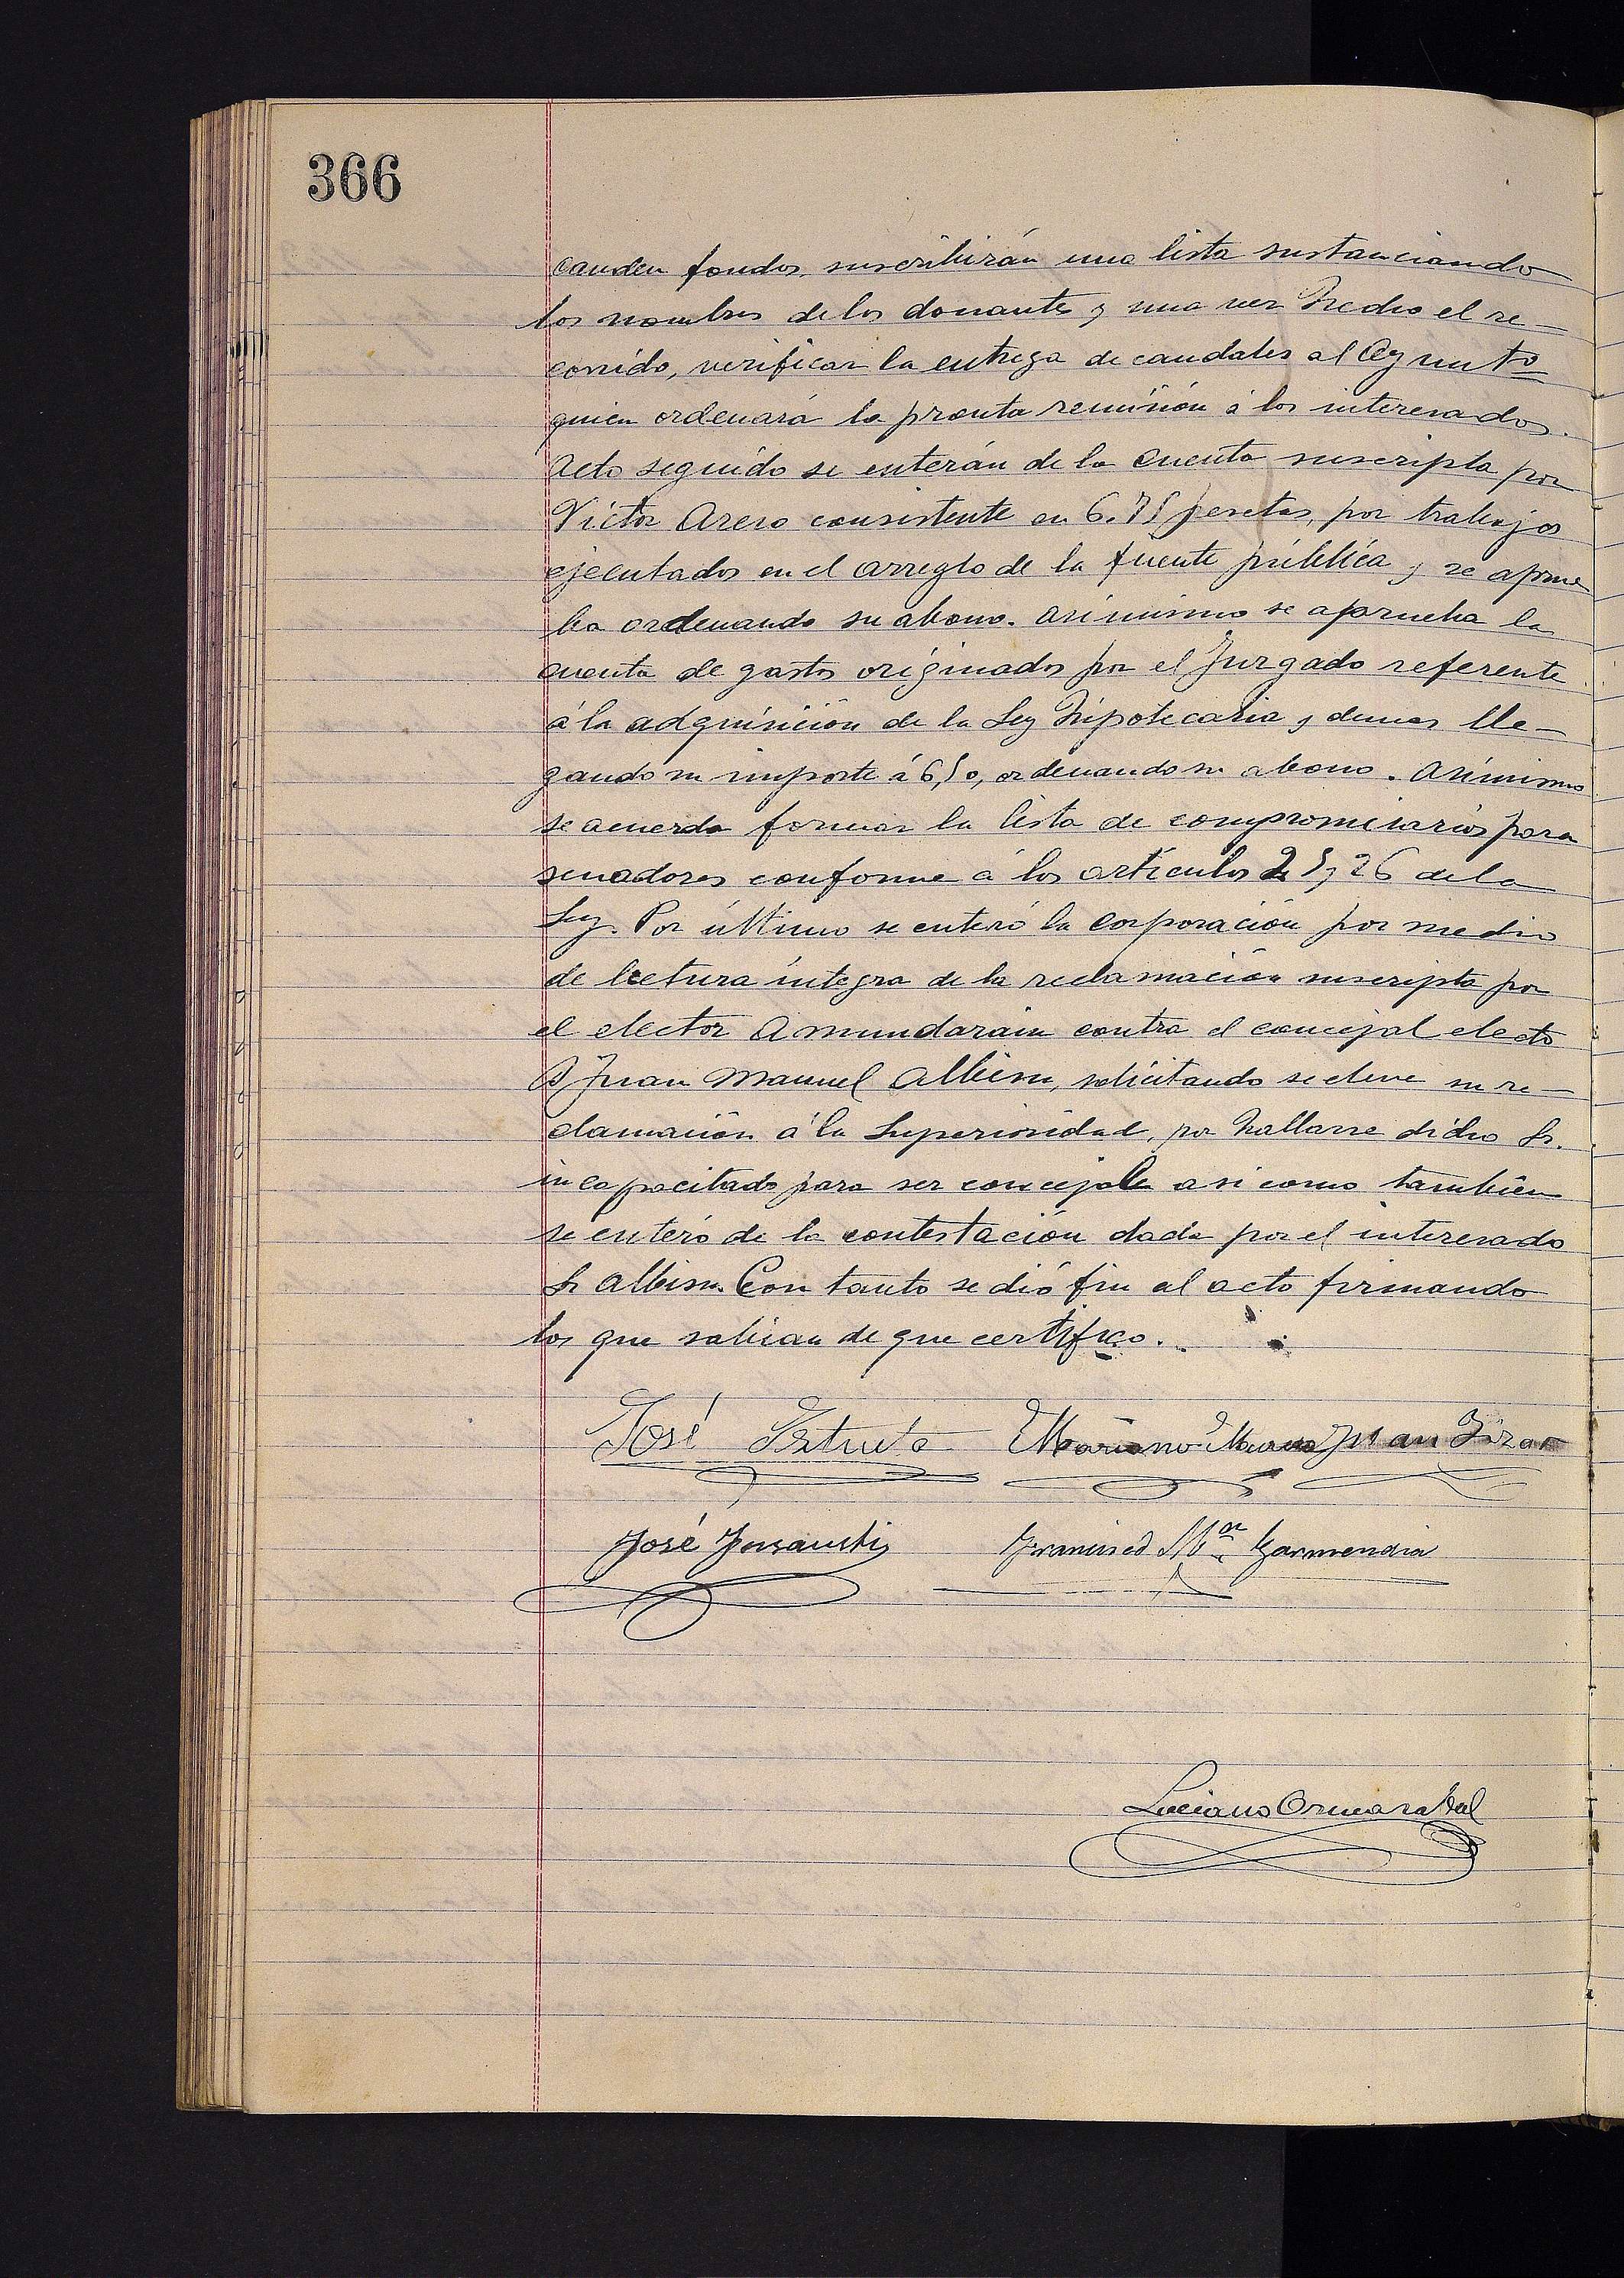 366
cauden fondos, suscribirán una lista sustanciando
los nombres de los donantes y una vez hecho el re-
corrido, verificar la entrega de caudales al Aymunto
quien ordenará la pronta remisión á los interesados.
Acto seguido se enterán de la cuenta suscripta por
Victor Arero consistente en 6.75 pesetas, por trabajos
ejecutados en el arreglo de la fuente pública y se aprue
ba ordenando su abono. Asimismo se aprueba la
cuenta de gastos originados por el Juzgado referente
á la adquisición de la Ley Hipotecaria y demas lle-
gando su importe á 6,50, ordenando su abono. Asimismo
se acuerda formar la lista de compromisarios para
senadores conforme á los artículos 25 y 26 de la
Ley. Por último se enteró la corporación por medio
de lectura íntegra de la reclamación suscripta por
el elector Amundarain contra el concejal electo
D Juan Manuel Albisu, solicitando se eleve su re-
clamación á la Superioridad, por hallarse dicho Sr.
incapacitado para ser concejal asi como también
se enteró de la contestación dada por el interesado
Sr Albisu. Con tanto se dió fin al acto firmando
los que sabian de que certifico.
José Mariano Juan
José Francisco M.an Garmendia
Luciano Ormazabal